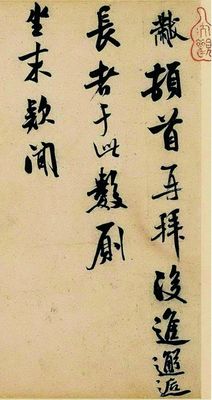 黻頓首再拜後進邂逅
長者于此數廁
坐末欵聞